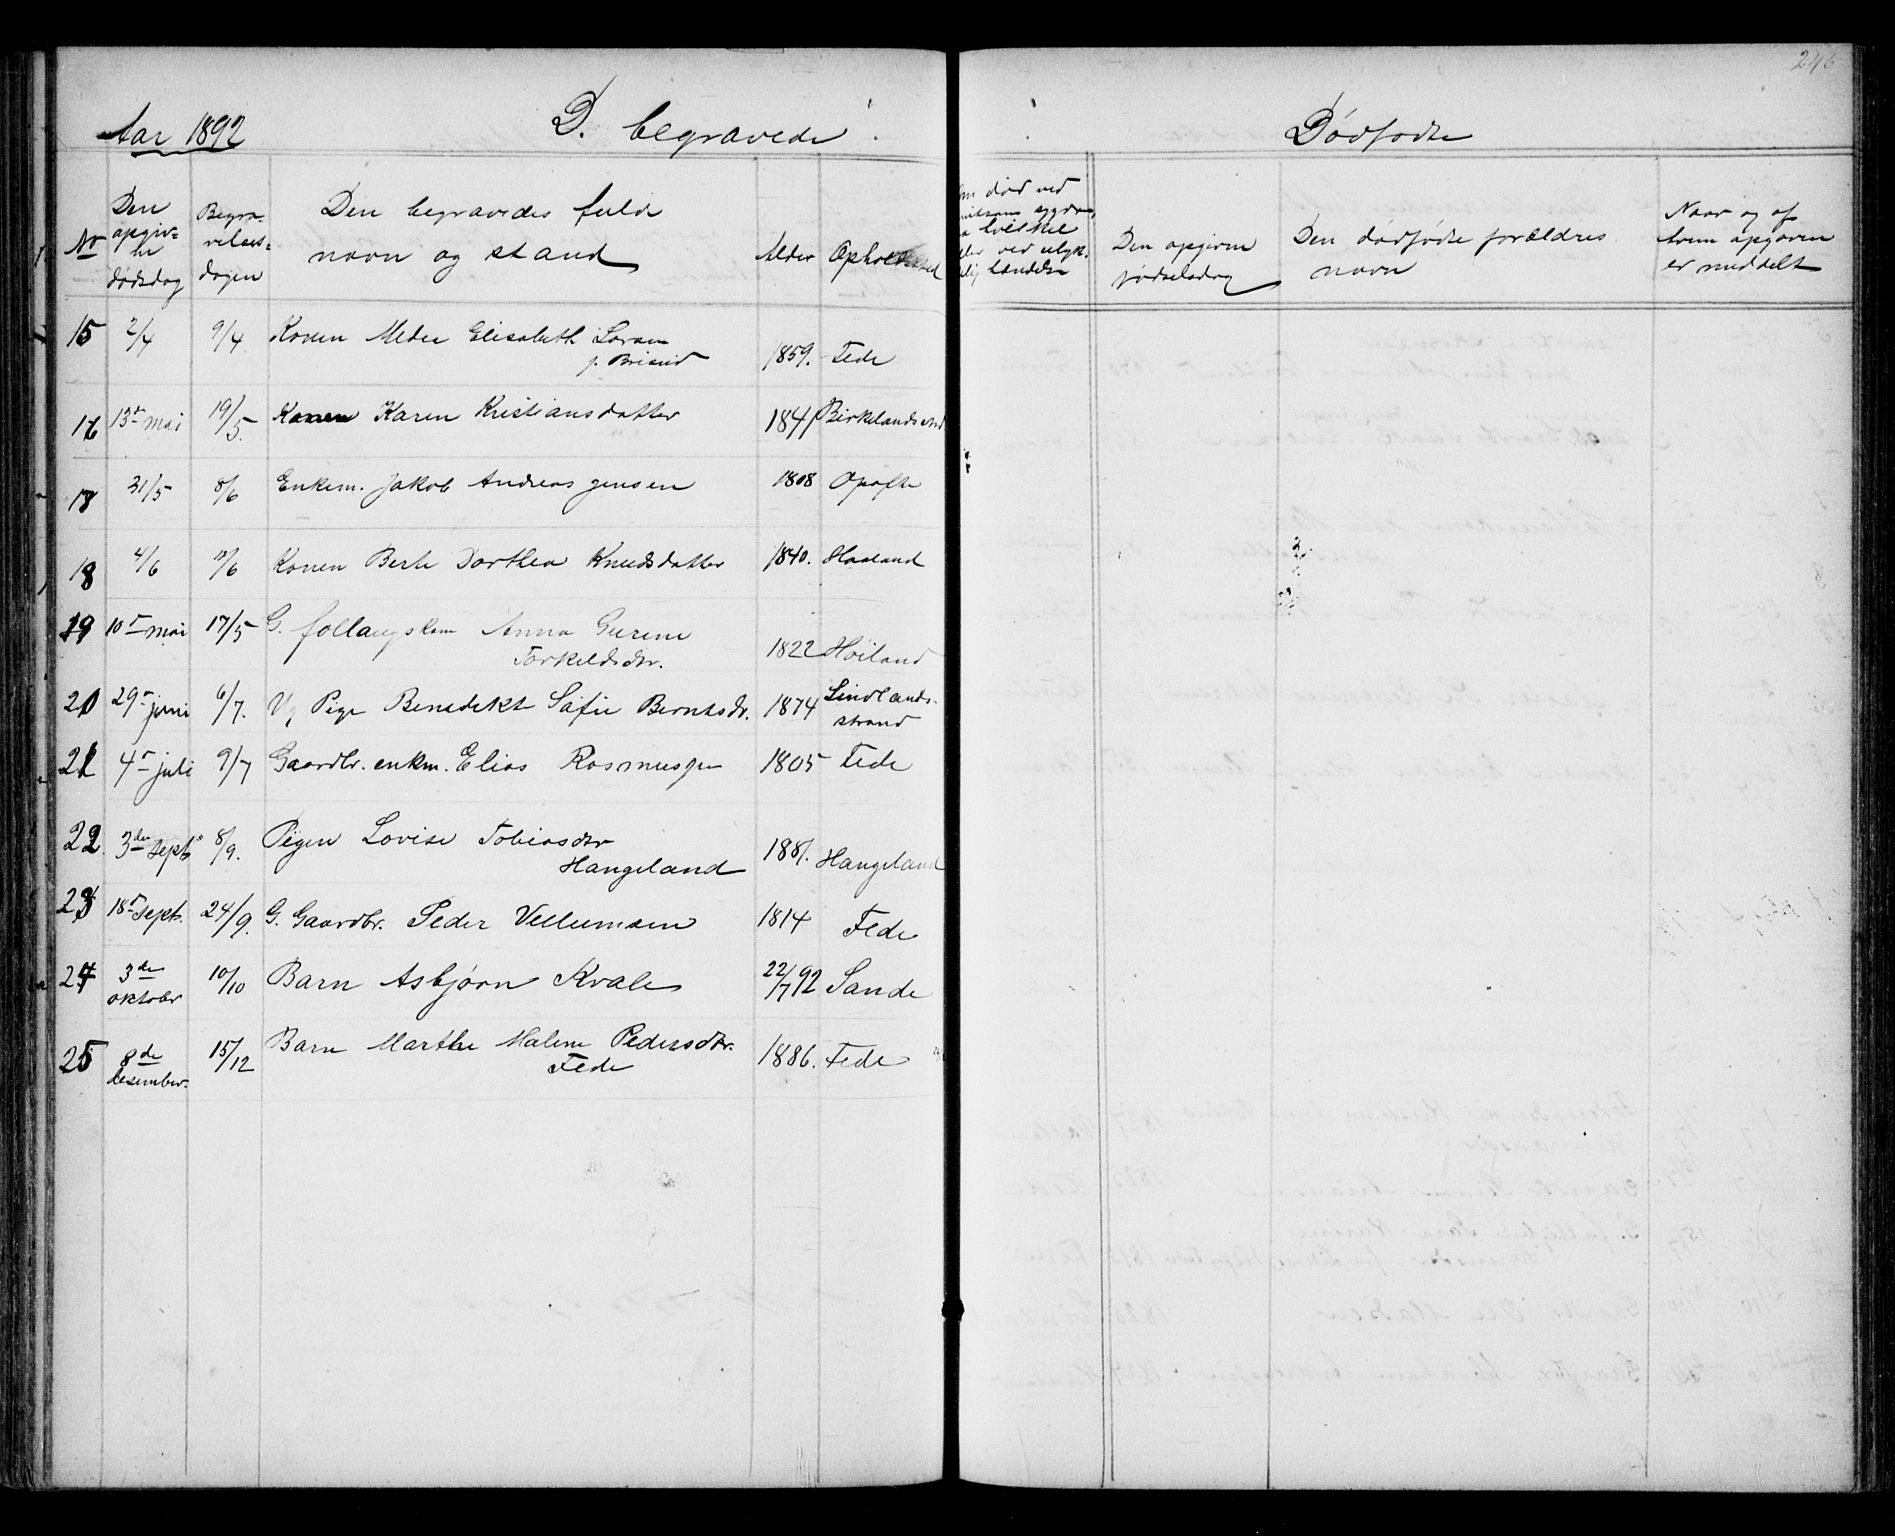 246
Aar 1892
D. begravede
Dødfødte
No
Den opgiv-
ne
dødsdag
Begra-
velses-
dagen
Den begravedes fulde
navn og stand
Alder
Opholdssted
død ved
hvilke
ved ulyk-
hændelse
Den opgivne
fødselsdag
Den dødfødte forældres
navn
Naar og af
hvem opgaven
er meddelt
15 2/4 9/4 Konen Elisabeth
1859. Fede
16 13de mai 19/5. Konen Karen Kristiansdatter 1841 Birkelandsstrand
17 31/5 8/6 Enkem. Jakob Andreas Jensen 1808 Opofte
18 4/6 11/6 Konen Berte Dorthea Knudsdatter 1840. Haaland
19 10de mai 17/5 G. Anna Gurine
Torkeldsdtr. 1822 Høiland
20 29de juni 6/7. Ug Pige Benedikte Safie Berntsdr. 1874 Lindlands-
strand
21 4de juli 9/7 Gaardbr. enkm. Elias Rasmussen 1805 Fede
22 3die sept. 8/9. Pigen Lovise Tobiasdtr
Hangeland 1881. Hangeland
23 18de sept. 24/9. G. Gaardbr. Peder Vellumsen 1814 Fede
24 3de
oktober 10/10 Barn Asbjørn Kvale 22/7 92 Sande
25 8de
desember. 15/12 Barn Marthe Malene Pedersdtr.
Fede 1886. Fede